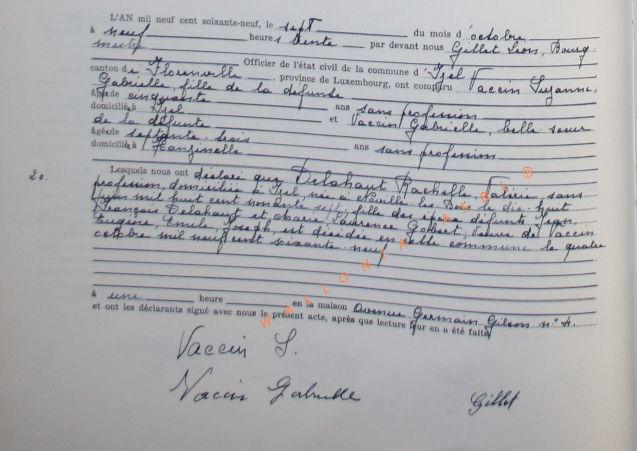 L'AN mil neuf cent soixante-neuf, le sept du mois d'octobre
à neuf heures trente par devant nous Gillet Léon, Bourg-
mestre
Officier de l'état civil de la commune d'Izel
canton de Florenville, province de Luxembourg, ont comparu Vaccin Suzanne,
Gabrielle, fille de la défunte
âgée de cinquante ans sans profession
domiciliée à Izel et Vaccin Gabrielle, belle-soeur
de la défunte
âgée de septante-trois ans sans profession
domiciliée à Hanzinelle
20. Lesquels nous ont déclaré que Delahaut Rachelle Valérie sans
profession, domiciliée à Izel, née à les Bois le dix-huit
mil huit cent nonante sept, fille des époux défunts Jean
François Delahaut et Marie, Laurence Gobert, veuve de Vaccin
Eugène, Emile, Joseph, est décédée en cette commune le quatre
octobre mil neuf cent soixante-neuf
à une heure en la maison Avenue Germain Gilson n° 4.
et ont les déclarants signé avec nous le présent acte, après que lecture leur en a été faite
Vaccin S.
Vaccin Gabrielle
Gillet
WALLONIA ASBL ©